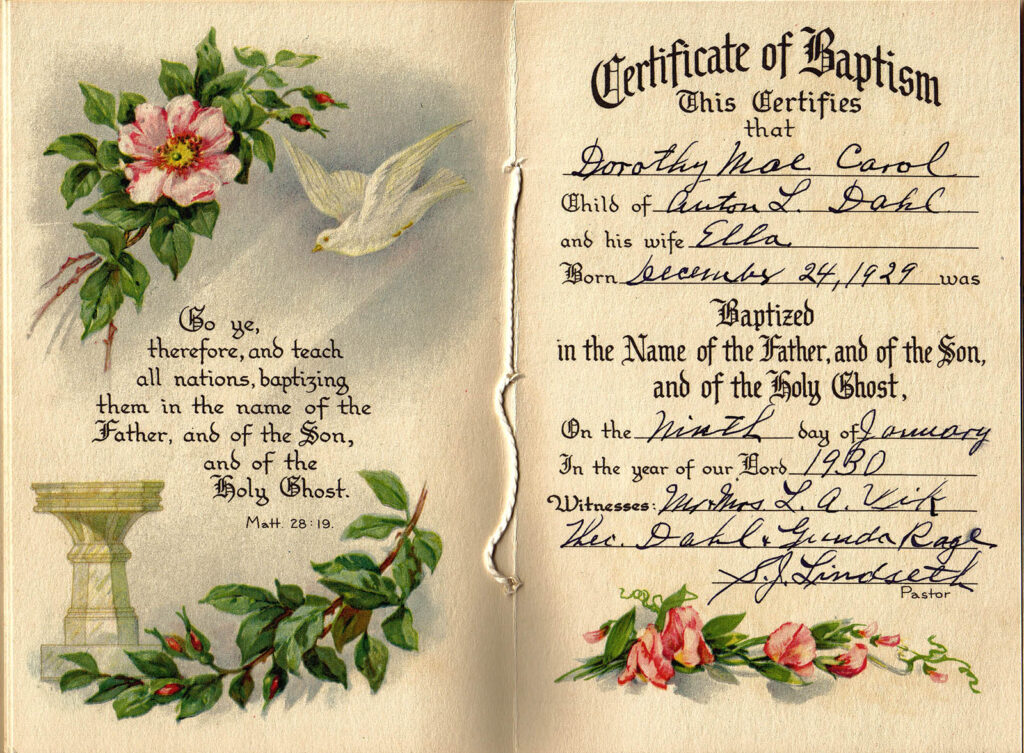 Go ye,
therefore, and teach
all nations, baptizing
them in the name of the
Father, and of the Son,
and of the
Holy Ghost.
Matt. 28:19.
Certificate of Baptism
This Certifies
that
Dorothy Mae Carol
Child of Anton L. Dahl
and his wife Ella
Born December 24, 1929 was
Baptized
in the Name of the Father, and of the Son,
and of the Holy Ghost,
On the Ninth day of January
In the year of our Lord 1930
Witnesses: Mr & Mrs L. A. Vik
Theo. Dahl & Gunda
S. J. Lindseth
Pastor